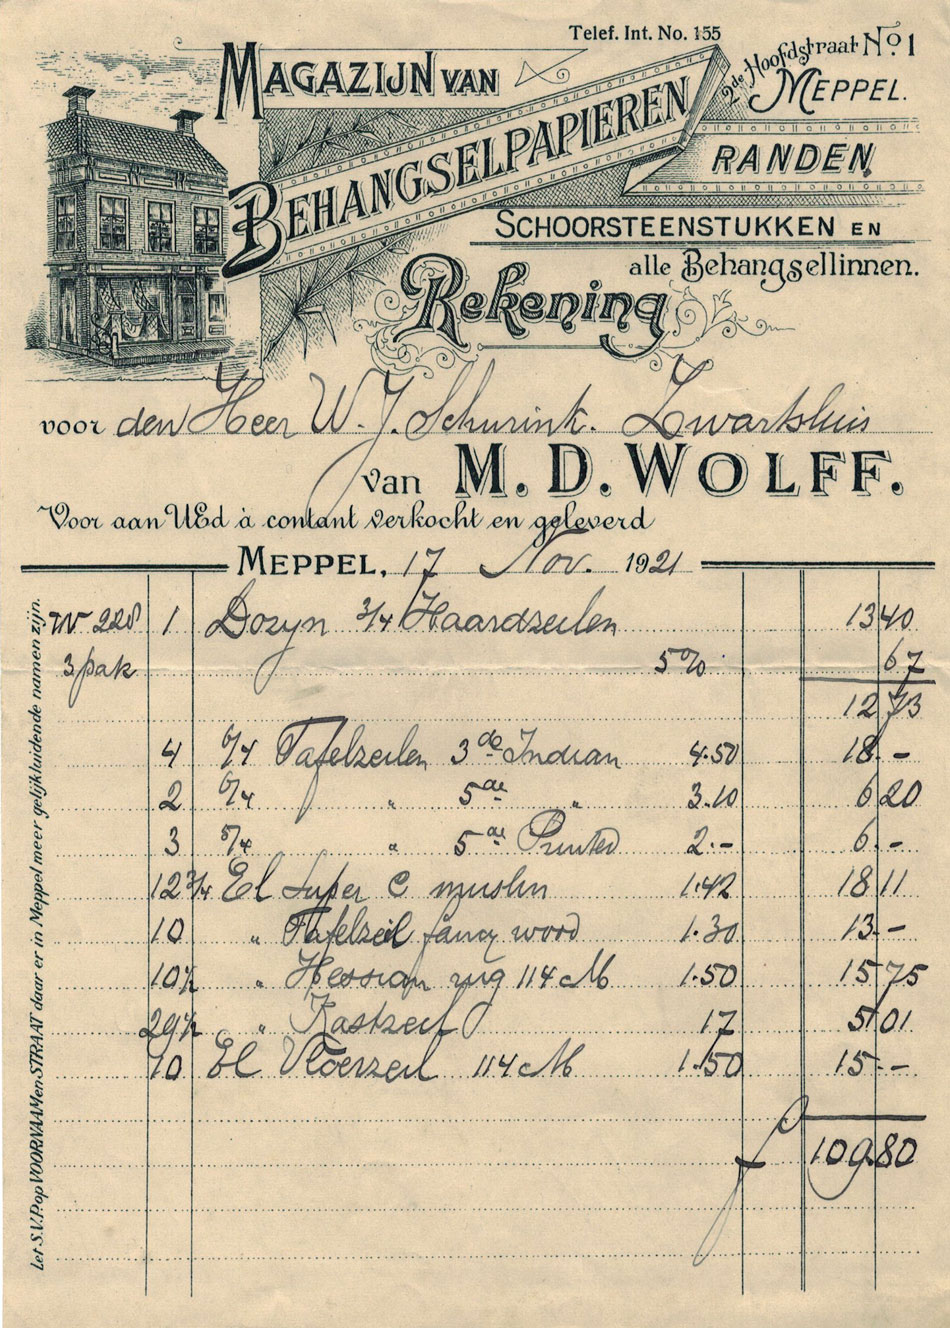 Telef. Int. No. 155
2de Hoofdstraat No 1
MEPPEL.
MAGAZIJN VAN
BEHANGSELPAPIEREN
RANDEN,
SCHOORSTEENSTUKKEN EN
alle Behangsellinnen.
Rekening
voor den Heer W. J. Schurink. Zwartsluis
van M. D. WOLFF.
Voor aan UEd à contant verkocht en geleverd
MEPPEL, 17 Nov. 1921
Let S.V.P. op VOORNAAM en STRAAT daar er in Meppel meer gelijkluidende namen zijn.
W 228 1 Dozyn 3/4 Haardzeilen 13 40
3 pak 5% 67
12 73
4 6/4 Tafelzeilen 3de Indian 4.50 18.-
2 6/4 " 5de " 3.10 6 20
3 5/4 " 5de Printed 2.- 6.-
12 3/4 El Super C muslin 1.42 18 11
10 " Tafelzeil fancy word 1.30 13.-
10 1/2 " Hessian rug 114 cM 1.50 15 75
29 1/2 " Kastzeil 17 5 01
10 El Vloerzeil 114 cM 1.50 15.-
f 109.80